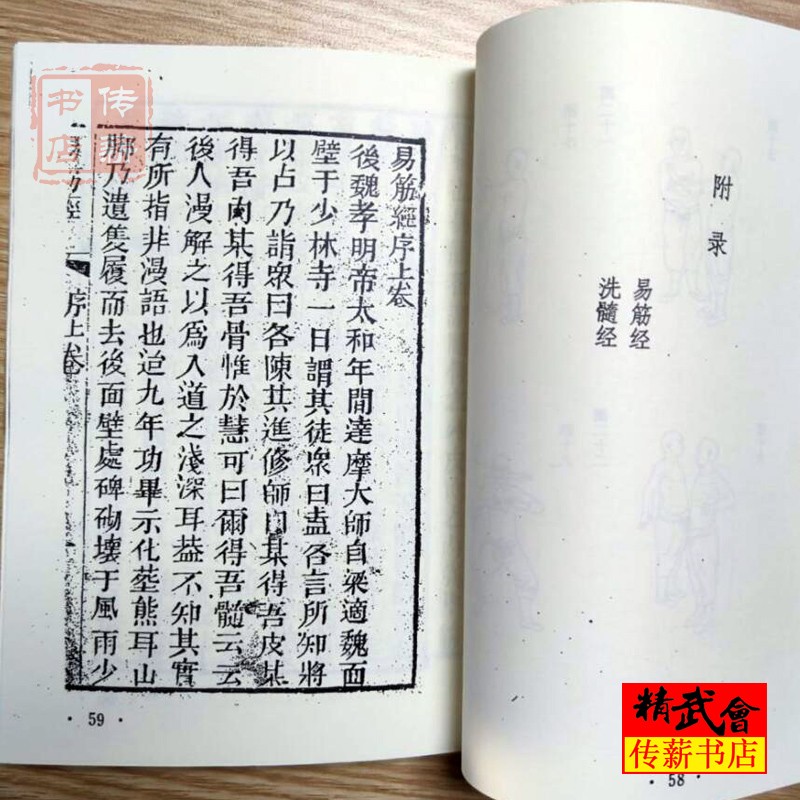 附录
易筋经
洗髓经
58
易筋經序上卷
後魏孝明帝太和年間達摩大師自梁適魏面
壁于少林寺一日謂其徒眾曰盍各言所知將
以占乃詣眾曰各陳其進修師曰某得吾皮某
得吾肉某得吾骨惟於慧可曰爾得吾髓云云
後人漫解之以為入道之淺深耳葢不知其實
有所指非漫語也迨九年功畢示化塟熊耳山
脚乃遺隻履而去後面壁處碑砌壞于風雨少
易筋經
序上卷
59
传薪书店
精武會
传薪书店